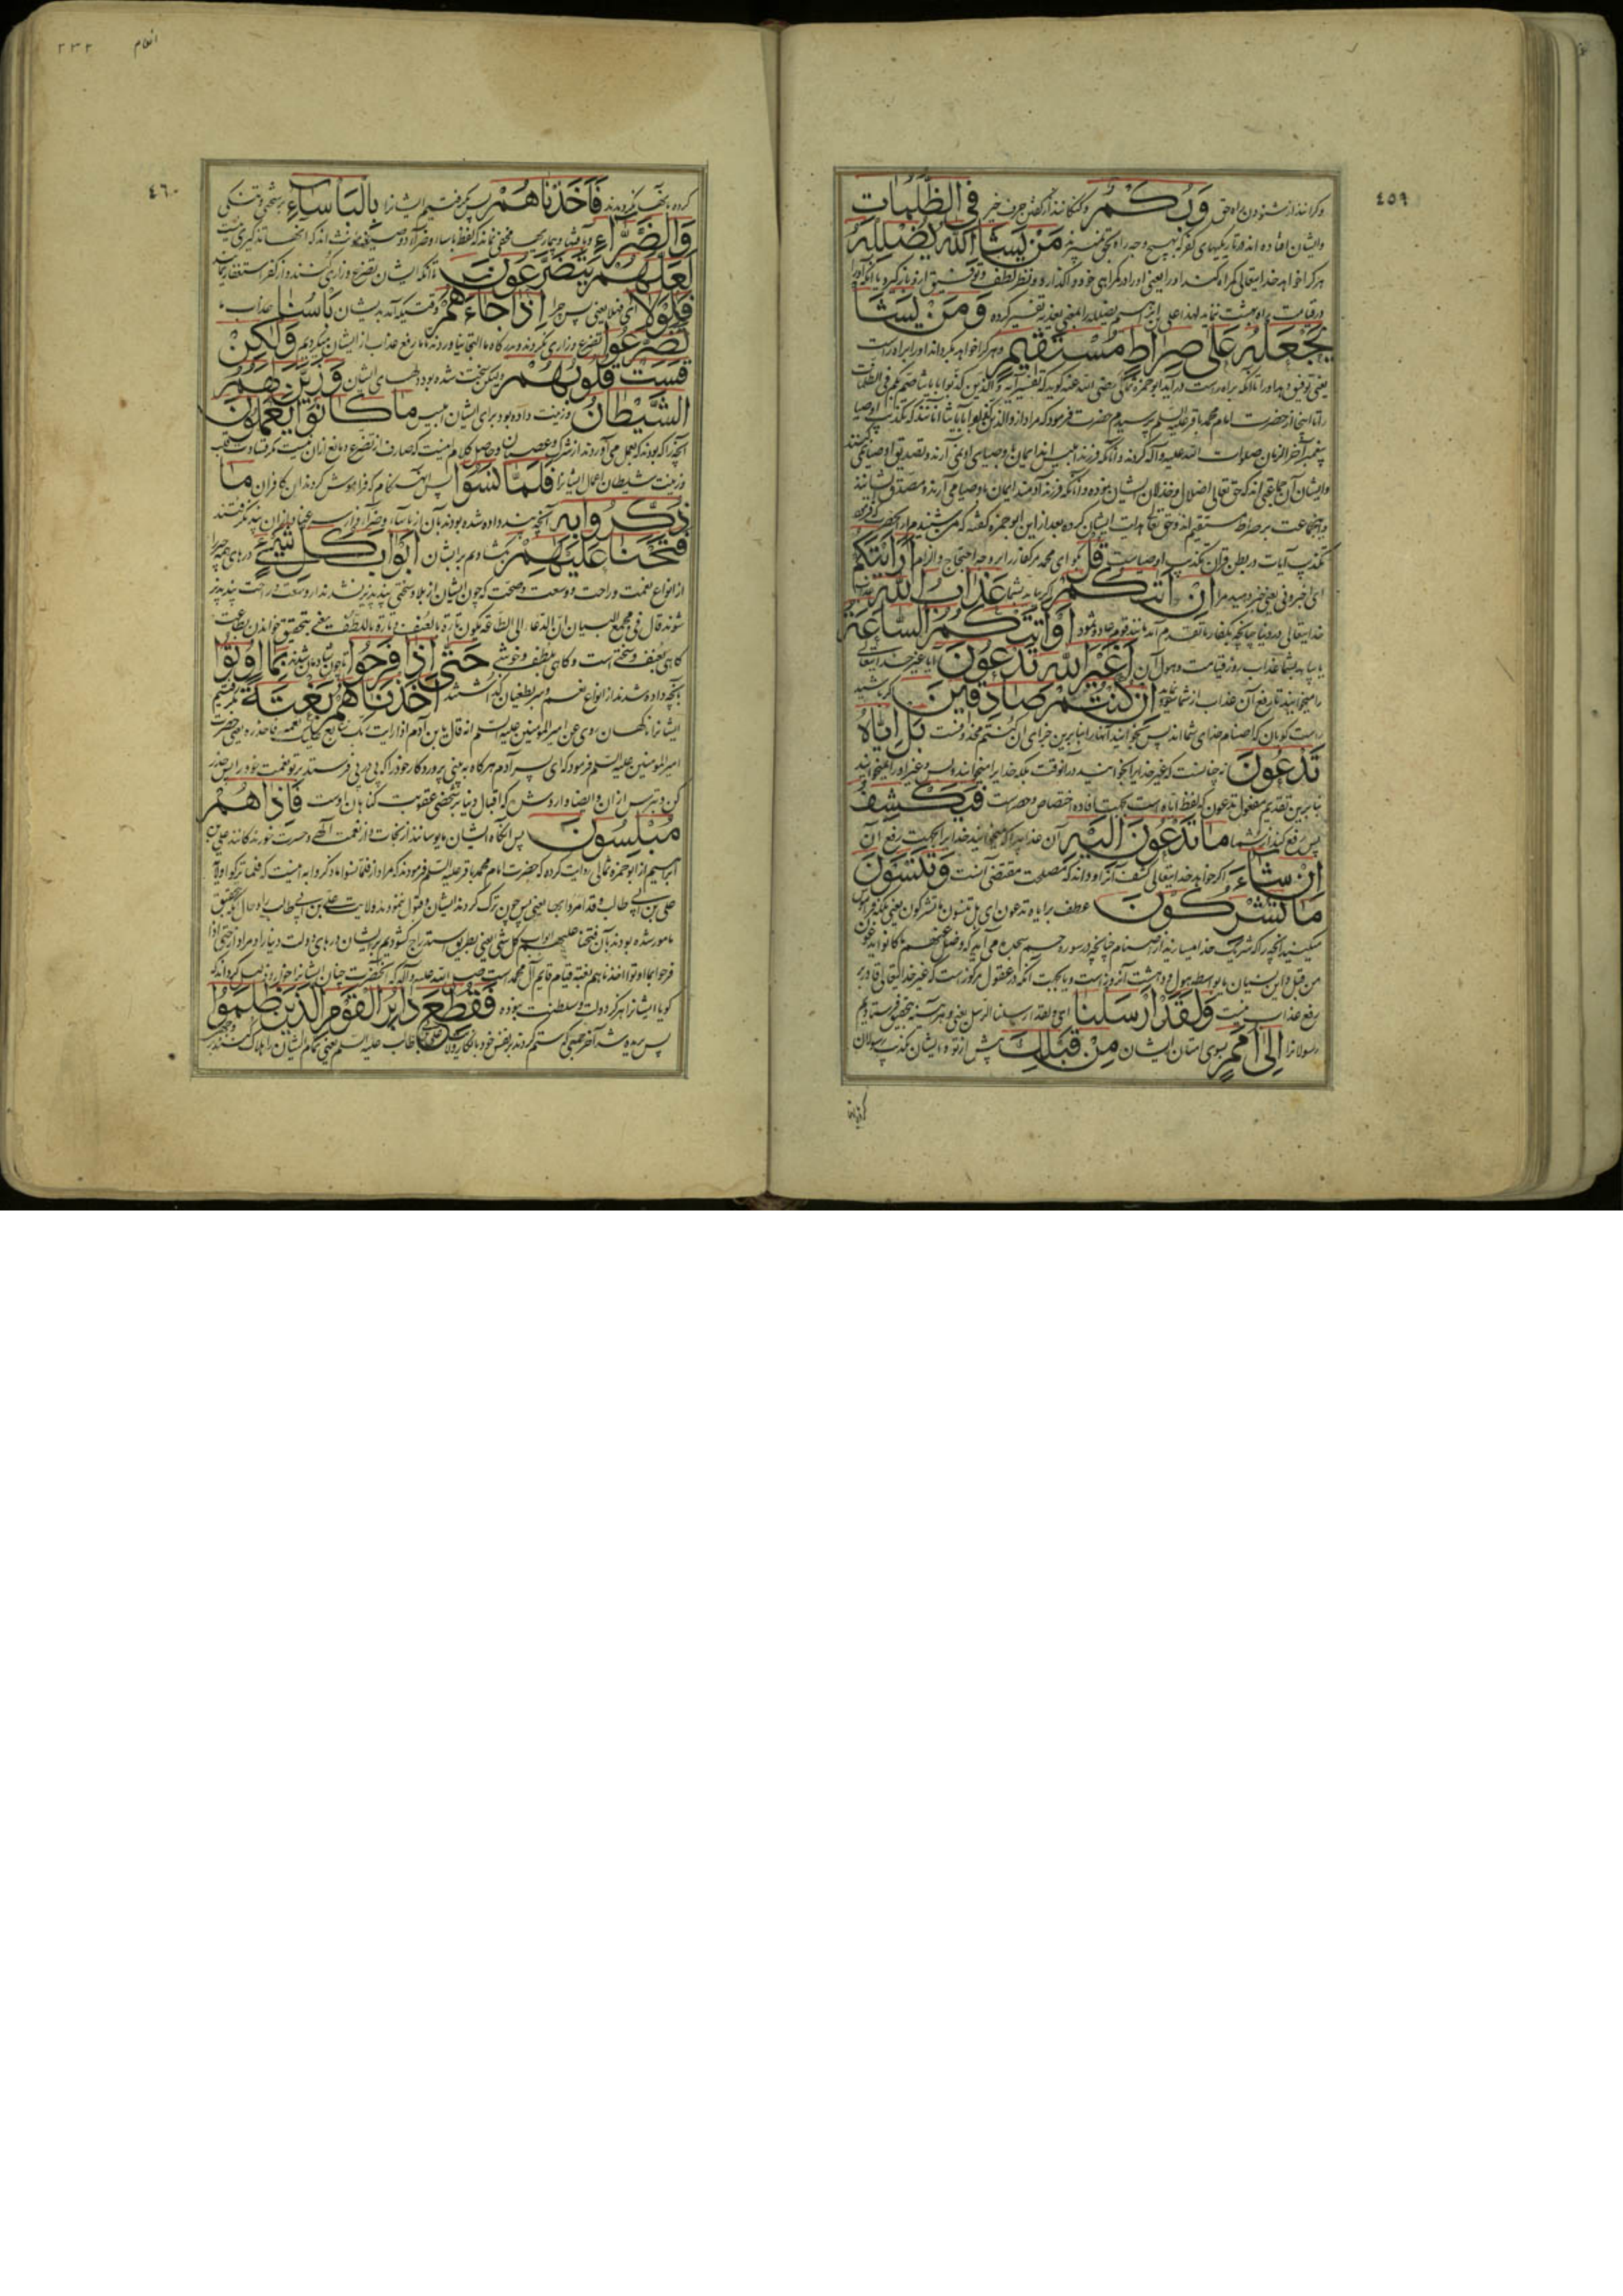 ٤٥٩
و کرانند از شنودن راه حق وَبُكْمٌ و گنگانند از گفتن حرف خیر فِي الظُّلُمَاتِ
وایشان افتاده اند در تاریکیهای کفر که بهیچ وجه راه مَنْ يَشَأِ اللَّهُ يُضْلِلْهُ
هر کرا خواهد خدایتعالی گمراه کند اورا یعنی اورا در گمراهی خود واگذارد ونظر لطف وتوفیق ازو بازگیرد یا آنکه اورا
در قیامت براه بهشت ننماید تفسیر کرده وَمَنْ يَشَأْ
يَجْعَلْهُ عَلَى صِرَاطٍ مُسْتَقِيمٍ وهر کرا خواهد بگرداند اورا براه راست
یعنی توفیق دهد اورا تا آنکه براه راست در آید ابو حمزه ثمالی رضی الله عنه گوید که تفسیر آیه والذین کذبوا بآیاتنا صم وبکم فی الظلمات
را از حضرت امام محمد باقر علیه السلم پرسیدم حضرت فرمود که مراد از والذین کذبوا بآیاتنا آنانند که تکذیب اوصیا
پیغمبر آخر الزمان صلوات الله علیه وآله کردند
وایشان آن جماعتی اند که حق تعالی اضلال وخذلان ایشان نموده وآنانکه فرزند آدمند ایمان باوصیا می آرند
واینجماعت بر صراط مستقیم اند وحق تعالی هدایت ایشان کرده بعد از این ابو حمزه گفته که من شنیدم از آنحضرت که فرمود
تکذیب آیات در بطن قران تکذیب اوصیاست قُلْ بگو ای محمد أَرَأَيْتَكُمْ
ای اخبرونی یعنی خبر دهید مرا إِنْ أَتَاكُمْ اگر بیاید بشما عَذَابُ اللَّهِ
خدایتعالی در دنیا چنانچه بکفار ما تقدم آمد أَوْ أَتَتْكُمُ السَّاعَةُ
یا بیاید بشما عذاب روز قیامت وهول آن أَغَيْرَ اللَّهِ تَدْعُونَ آیا غیر خدایتعالی
را میخوانید تا رفع آن عذاب از شما شود إِنْ كُنْتُمْ صَادِقِينَ اگر باشید
راست گویان که اصنام خدای شما اند پس بخوانید آنهارا بنابرین جزای ان کنتم محذوفست بَلْ إِيَّاهُ
تَدْعُونَ نه چنانست که غیر خدایرا بخوانید در آنوقت بلکه خدایرا میخوانید وبس وغیر اورا نمیخوانید
بنابرین تقدیم مفعول تدعون که لفظ ایاه است بجهت افاده اختصاص وحصر است فَيَكْشِفُ
پس رفع کند از شما مَا تَدْعُونَ إِلَيْهِ آن عذابیرا که میخوانید خدایرا بجهت رفع آن
إِنْ شَاءَ اگر خواهد خدایتعالی کشف آنرا وداند که مصلحت مقتضی آنست وَتَنْسَوْنَ
مَا تُشْرِكُونَ عطف بر ایاه تدعون ای بل تنسون ما تشرکون یعنی بلکه فراموش
میکنید آنچه را که شریک خدا میسازید از اصنام چنانچه در سوره حم سجده می آید که وضل عنهم ما کانوا یدعون
من قبل واین نسیان یا بواسطه هول ودهشت آنروز است ویا بجهت آنکه در عقول مرکوز است که غیر خدایتعالی قادر بر
رفع عذاب نیست وَلَقَدْ أَرْسَلْنَا ای ولقد ارسلنا الرسل یعنی وهر آینه بتحقیق فرستادیم
رسولانرا إِلَى أُمَمٍ بسوی امتان ایشان مِنْ قَبْلِكَ پیش از تو وایشان تکذیب رسولان
انعام
٢٣٢
٤٦٠
کرده بآنها نگرویدند فَأَخَذْنَاهُمْ پس گرفتیم ایشانرا بِالْبَأْسَاءِ بسختی وتنگی
وَالضَّرَّاءِ وبآفتها وبیماریها مخفی نماند که لفظ باساء وضراء دو صیغه مؤنث اند که آنهارا مذکری نیست
لَعَلَّهُمْ يَتَضَرَّعُونَ تا آنکه ایشان تضرع وزاری کنند واز کفر استغفار نمایند
فَلَوْلَا ای فهلا یعنی پس چرا إِذْ جَاءَهُمْ وقتیکه آمد بدیشان بَأْسُنَا عذاب ما
تَضَرَّعُوا تضرع وزاری نکردند ودر درگاه ما التجا نیاوردند تا ما رفع عذاب از ایشان میکردیم وَلَكِنْ
قَسَتْ قُلُوبُهُمْ ولیکن سخت شده بود دلهای ایشان وَزَيَّنَ لَهُمُ
الشَّيْطَانُ وزینت داده بود برای ایشان ابلیس مَا كَانُوا يَعْمَلُونَ
آنچه را که بودند که بعمل می آوردند از شرک وعصیان وحاصل کلام اینست که صارف از تضرع ومانع ازان نیست مگر قساوت قلب
وزینت شیطان اعمال ایشانرا فَلَمَّا نَسُوا پس آن هنگام که فراموش کردند آن کافران مَا
ذُكِّرُوا بِهِ آنچه پند داده شده بودند بآن از باساء وضراء
فَتَحْنَا عَلَيْهِمْ بگشادیم بر ایشان أَبْوَابَ كُلِّ شَيْءٍ درهای همه چیز را
از انواع نعمت وراحت ووسعت وصحت که چون ایشان از بلا وسختی پند پذیر نشدند از وسعت وراحت پند پذیر
شوند قال فی مجمع البیان ان الدعاء الی الطاعة یکون تارة بالعنف وتارة باللطف یعنی بتحقیق خواندن بطاعت
گاهی بعنف وسختی است وگاهی بلطف وخوشی حَتَّى إِذَا فَرِحُوا تا چون شادمان شدند بِمَا أُوتُوا
بآنچه داده شدند از انواع نعم وسر بطغیان گذاشتند أَخَذْنَاهُمْ بَغْتَةً بگرفتیم
ایشانرا ناگهان روی عن امیر المؤمنین علیه السلم انه قال یا بن آدم اذا رایت ربک تتابع علیک نعمه فاحذره یعنی حضرت
امیر المؤمنین علیه السلم فرمود که ای پسر آدم هرگاه به بینی پروردگار خود را که پی در پی فرستد بر تو نعمت خود را پس حذر
کن وبترس از آن فَإِذَا هُمْ
مُبْلِسُونَ پس آنگاه ایشان مایوسانند از نجات واز نعمت آلهی وحسرت خورندگانند علی بن
ابراهیم از ابو حمزه ثمالی روایت کرده که حضرت امام محمد باقر علیه السلم فرمودند که مراد از فلما نسوا ما ذکروا به اینست که فلما ترکوا ولایة
علی بن ابی طالب وقد امروا بها یعنی پس چون ترک کردند ایشان وقبول ننمودند ولایت علی بن ابی طالب را وحال آنکه بتحقیق
مامور شده بودند بآن فتحنا علیهم ابواب کل شیء یعنی بطریق استدراج گشودیم بر ایشان درهای دولت دنیا را ومراد از حتی اذا
فرحوا بما اوتوا اخذناهم بغتة قیام قایم آل محمد است صلی الله علیه وآله که آنحضرت چنان ایشانرا خوار وذلیل گرداند که
گویا ایشانرا هرگز دولت وسلطنت نبوده فَقُطِعَ دَابِرُ الْقَوْمِ الَّذِينَ ظَلَمُوا
پس بریده شد آخر جمعی که ستم کردند بر نفس خود بانکار ولایت علی بن ابی طالب علیه السلم یعنی تمام ایشان را هلاک کنند